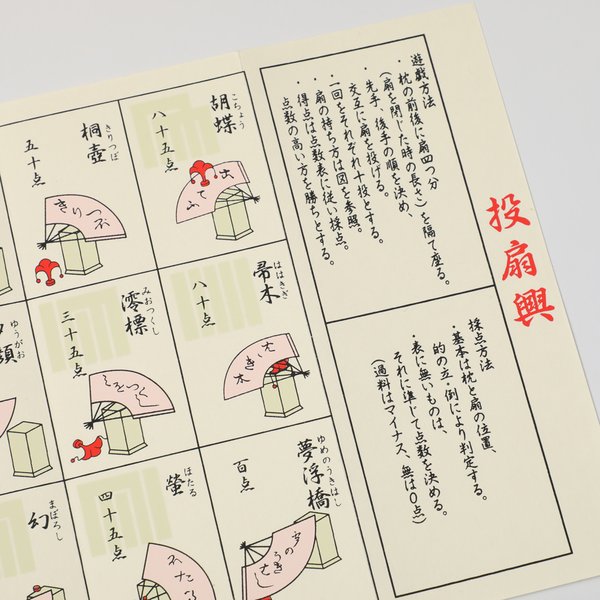 投扇興
遊戯方法
・枕の前後に扇四つ分
(扇を閉じた時の長さ)を隔て座る。
・先手、後手の順を決め、
交互に扇を投げる。
・一回をそれぞれ十投とする。
・扇の持ち方は図を参照。
・得点は点数表に従い採点。
点数の高い方を勝ちとする。
採点方法
・基本は枕と扇の位置、
的の立・倒により判定する。
・表に無いものは、
それに準じて点数を決める。
(過料はマイナス、無は0点)
胡蝶
こちょう
八十五点
こてふ
桐壺
きりつぼ
五十点
きりつぶ
帚木
ははきぎ
八十点
はゝき木
澪標
みおつくし
三十五点
みをつくし
ゆうがお
夢浮橋
ゆめのうきはし
百点
螢
ほたる
四十五点
ほたる
幻
まぼろし